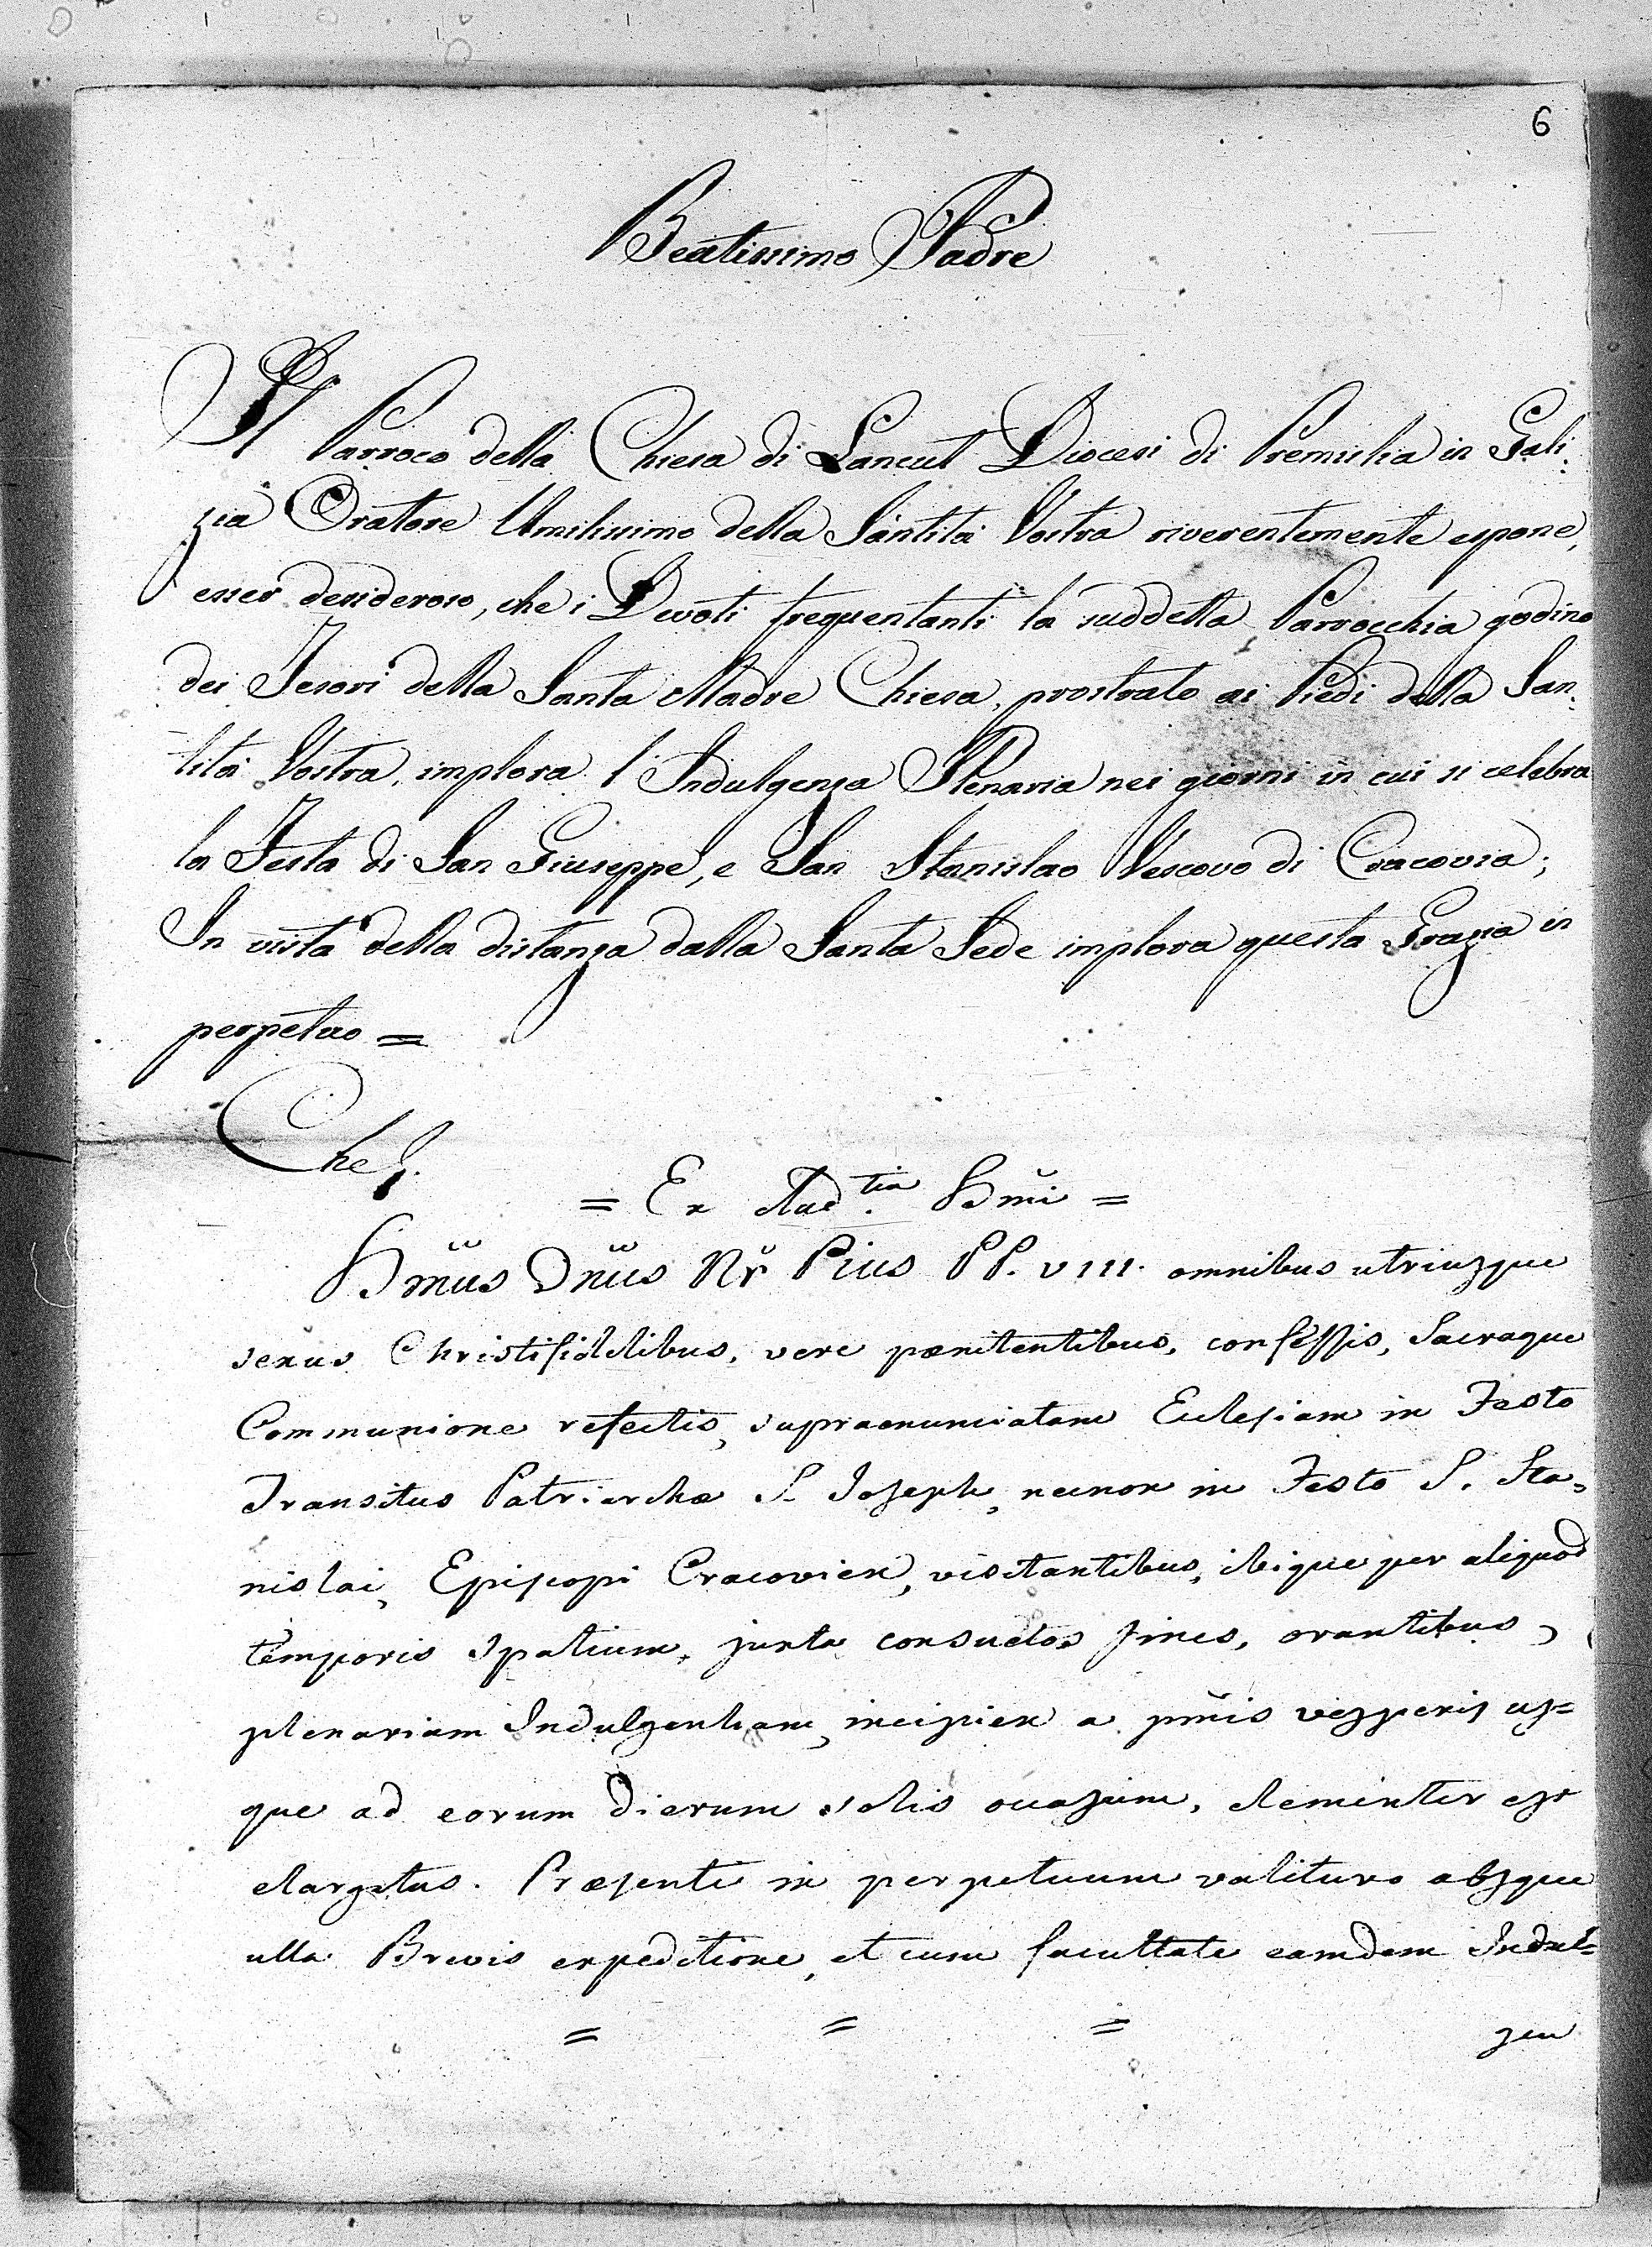 6
Beatissimo Padre
Il Parroco della Chiesa di Lancut Diocesi di Premislia in Gali:
zia Oratore Umilissimo della Santità Vostra riverentemente espone,
esser desideroso, che i Devoti frequentanti la suddetta Parrocchia godino
dei Tesori della Santa Madre Chiesa, prostrato ai Piedi della San:
tità Vostra, implora l'Indulgenza Plenaria nei giorni in cui si celebra
la Festa di San Giuseppe, e San Stanislao Vescovo di Cracovia;
In vista della distanza dalla Santa Sede implora questa Grazia in
perpetuo =
Che
= Ex Aud.tia SSmi =
SSmus Dnus Nr Pius PP. VIII. omnibus utriusque
sexus Christifidelibus, vere pœnitentibus, confessis, Sacraque
Communione refectis, supraenunciatam Eclesiam in Festo
Transitus Patriarchæ S. Joseph, necnon in Festo S. Sta=
nislai, Episcopi Cracovien, visitantibus, ibique per aliquod
temporis spatium, juxta consuetos fines, orantibus,
plenariam Indulgentiam, incipien a pmis vesperis us=
que ad eorum dierum solis ocasum, clementer est
elargitus. Præsenti in perpetuum valituro absque
ulla Brevis expeditione, et cum facultate eamdem Indul=
= = = gen